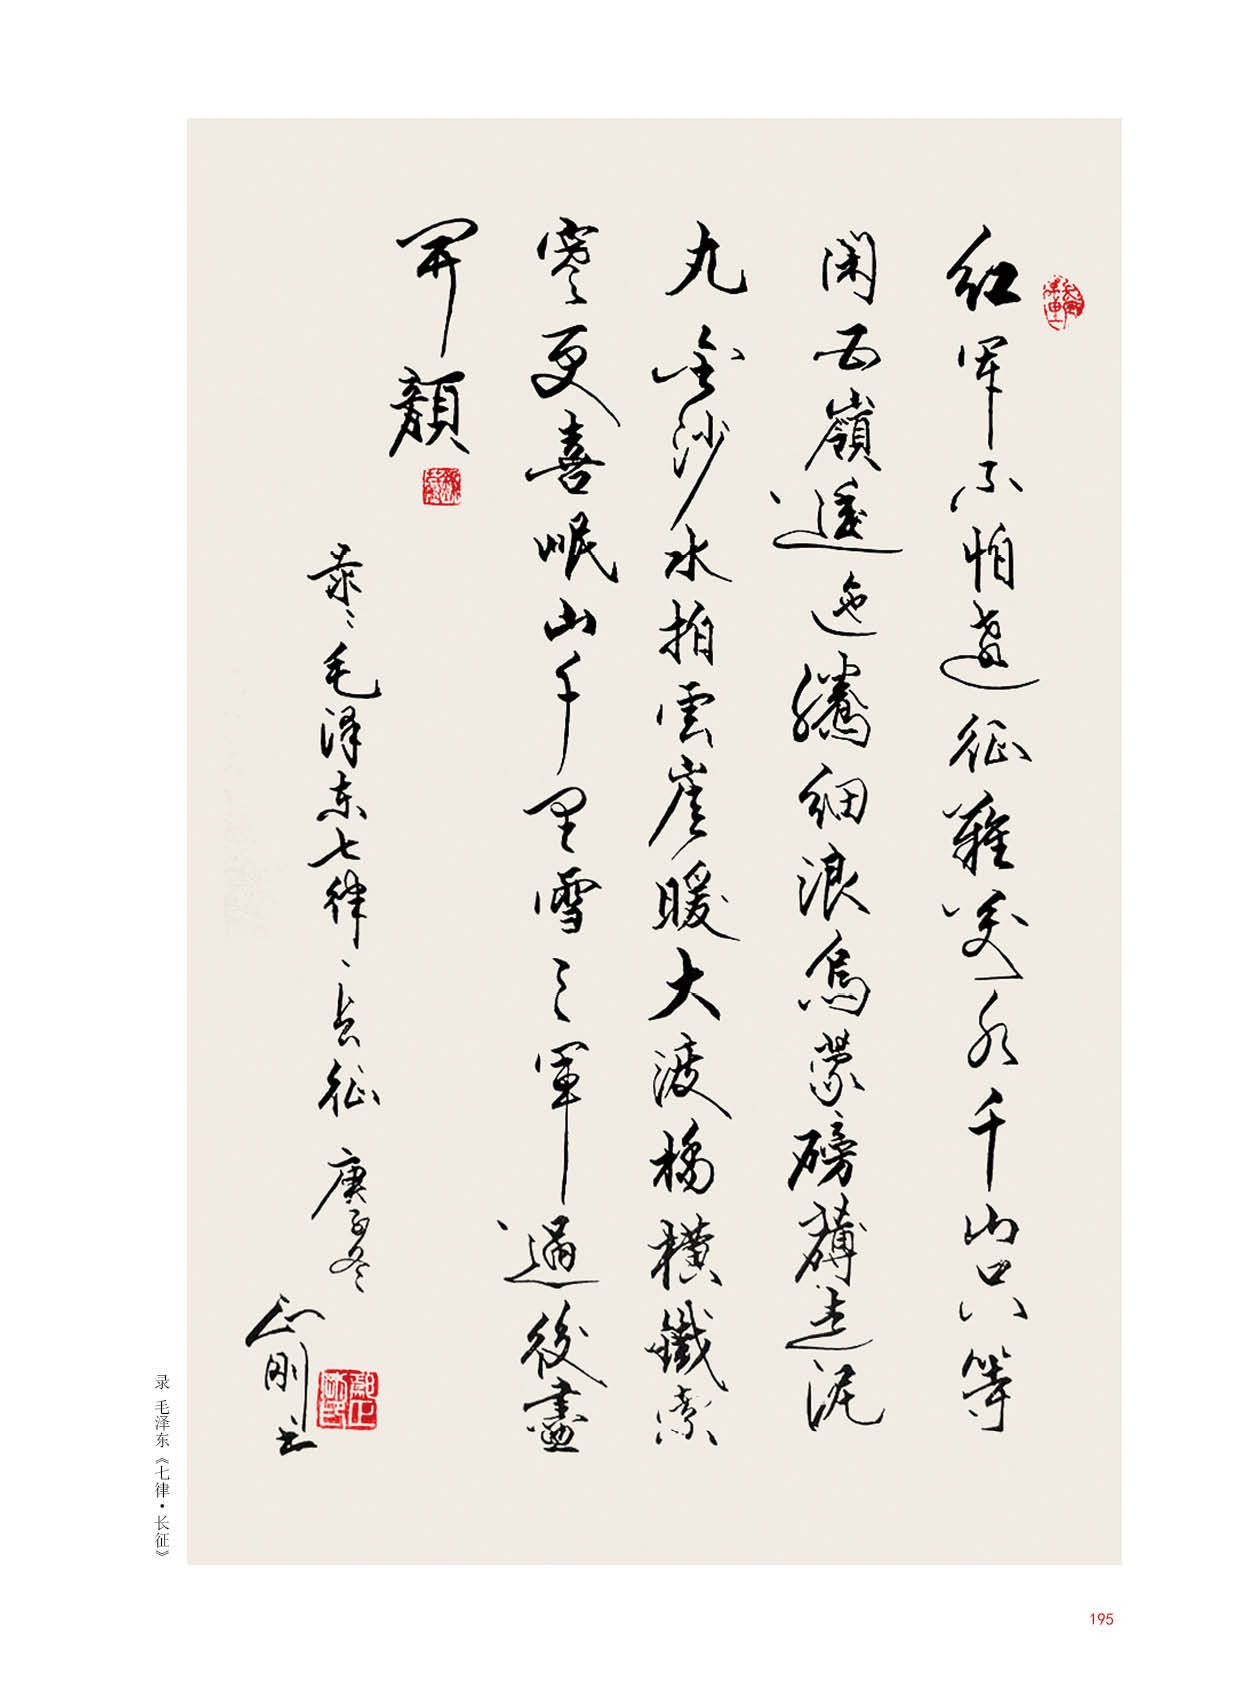 紅軍不怕遠征難萬水千山只等
閑五嶺逶迤騰細浪烏蒙磅礴走泥
丸金沙水拍雲崖暖大渡橋橫鐵索
寒更喜岷山千里雪三軍過後盡
開顏
录毛泽东七律长征 庚子冬
正刚书
录 毛泽东《七律·长征》
195